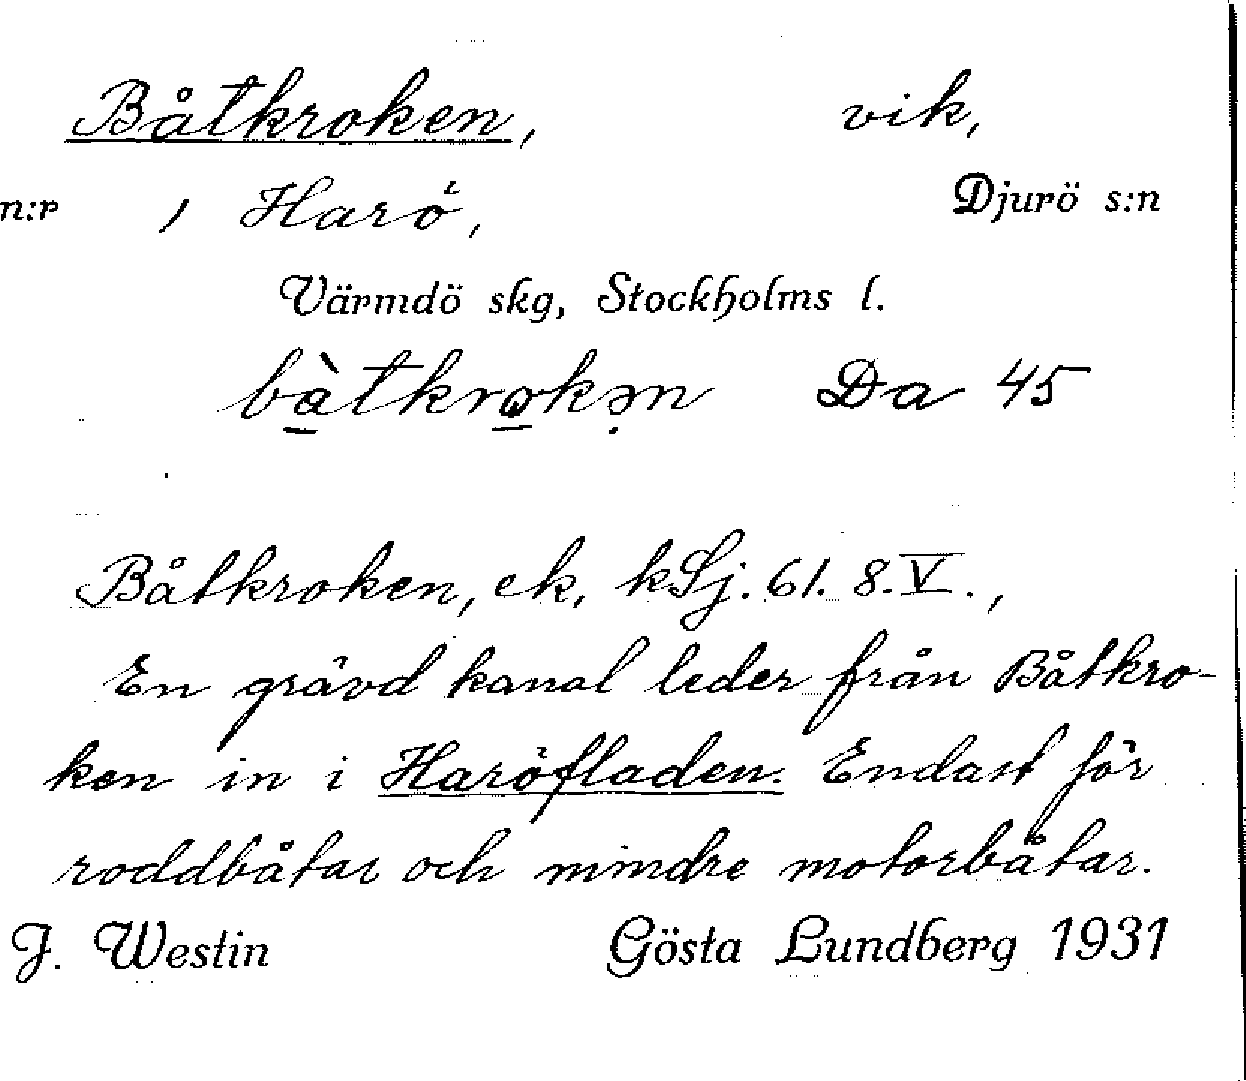 Båtkroken, vik,
n:r 1 Harö, Djurö s:n
Värmdö skg, Stockholms l.
bàtkrokən Da 45
Båtkroken, ek. kSj. 61. 8. V.,
En grävd kanal leder från Båtkro-
ken in i Haröfladen. Endast för
roddbåtar och mindre motorbåtar.
J. Westin Gösta Lundberg 1931